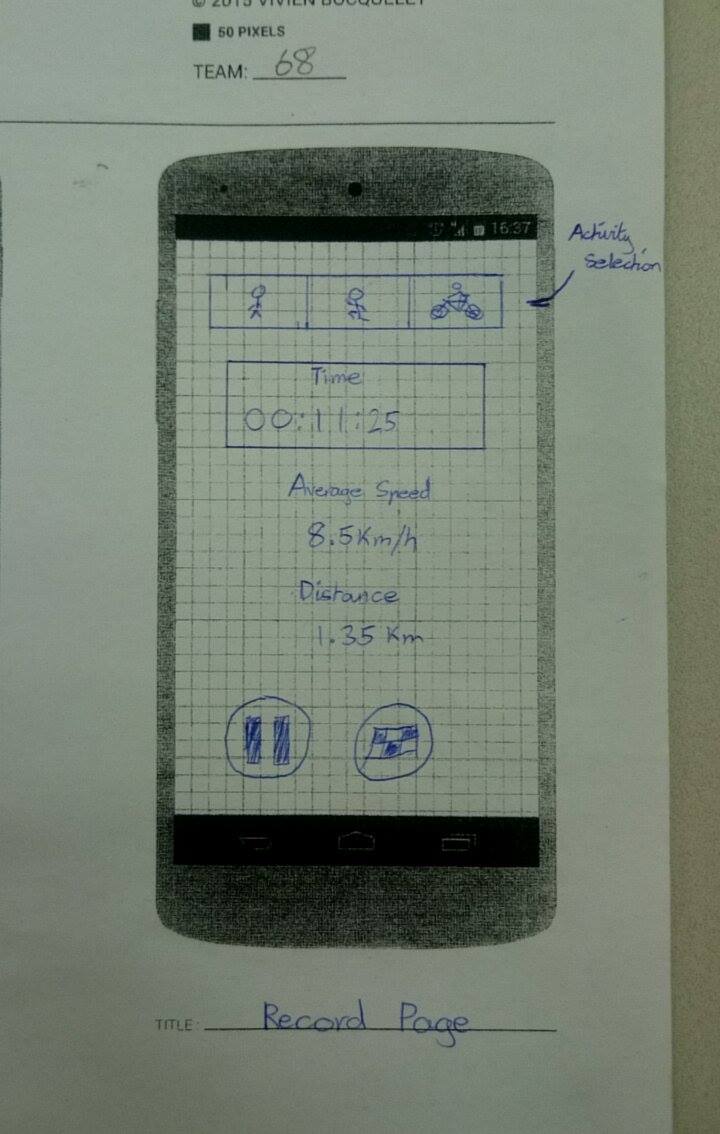 © 2015 VIVIEN BOCQUELET
50 PIXELS
TEAM: 68
16:37
Activity
Selection
Time
00:11:25
Average Speed
8.5Km/h
Distance
1.35 Km
TITLE: Record Page